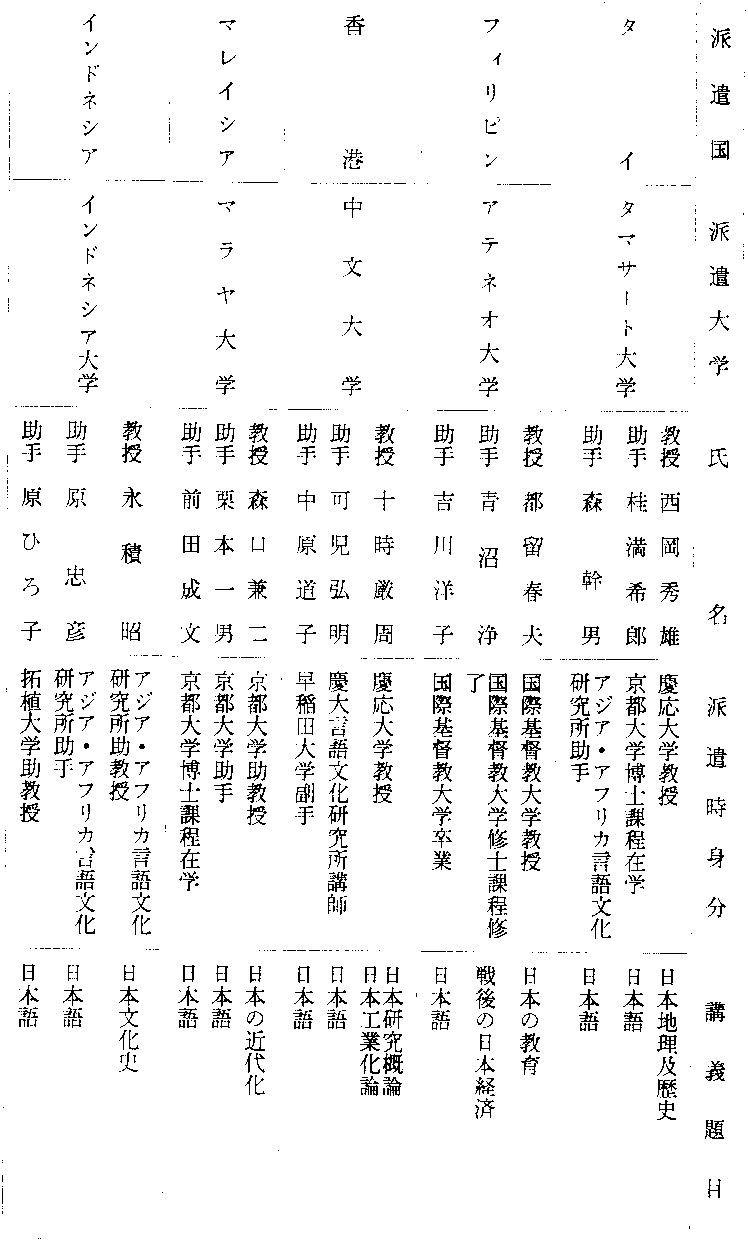 派遣国
派遣大学
氏名
派遣時身分
講義題目
タイ
タマサート大学
教授 西岡秀雄
慶応大学教授
日本地理及歴史
助手 桂満希郎
京都大学博士課程在学
日本語
助手 森幹男
アジア・アフリカ言語文化
研究所助手
日本語
フィリピン
アテネオ大学
教授 都留春夫
国際基督教大学教授
日本の教育
助手 青沼浄
国際基督教大学修士課程修
了
戦後の日本経済
助手 吉川洋子
国際基督教大学卒業
日本語
香港
中文大学
教授 十時厳周
慶応大学教授
日本研究概論
日本工業化論
助手 可児弘明
慶大言語文化研究所講師
日本語
助手 中原道子
早稲田大学副手
日本語
マレイシア
マラヤ大学
教授 森口兼二
京都大学助教授
日本の近代化
助手 栗本一男
京都大学助手
日本語
助手 前田成文
京都大学博士課程在学
日本語
インドネシア
インドネシア大学
教授 永積昭
アジア・アフリカ言語文化
研究所助教授
日本文化史
助手 原忠彦
アジア・アフリカ言語文化
研究所助手
日本語
助手 原ひろ子
拓植大学助教授
日本語